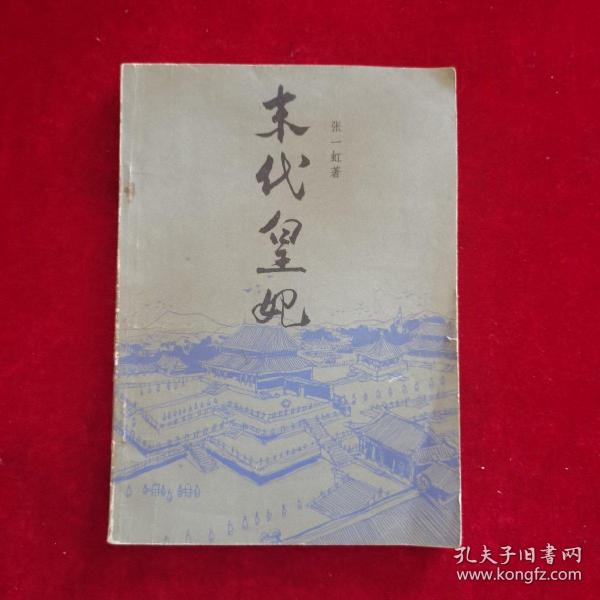 末代皇妃
张一虹著
孔夫子旧书网
www.kongfz.com